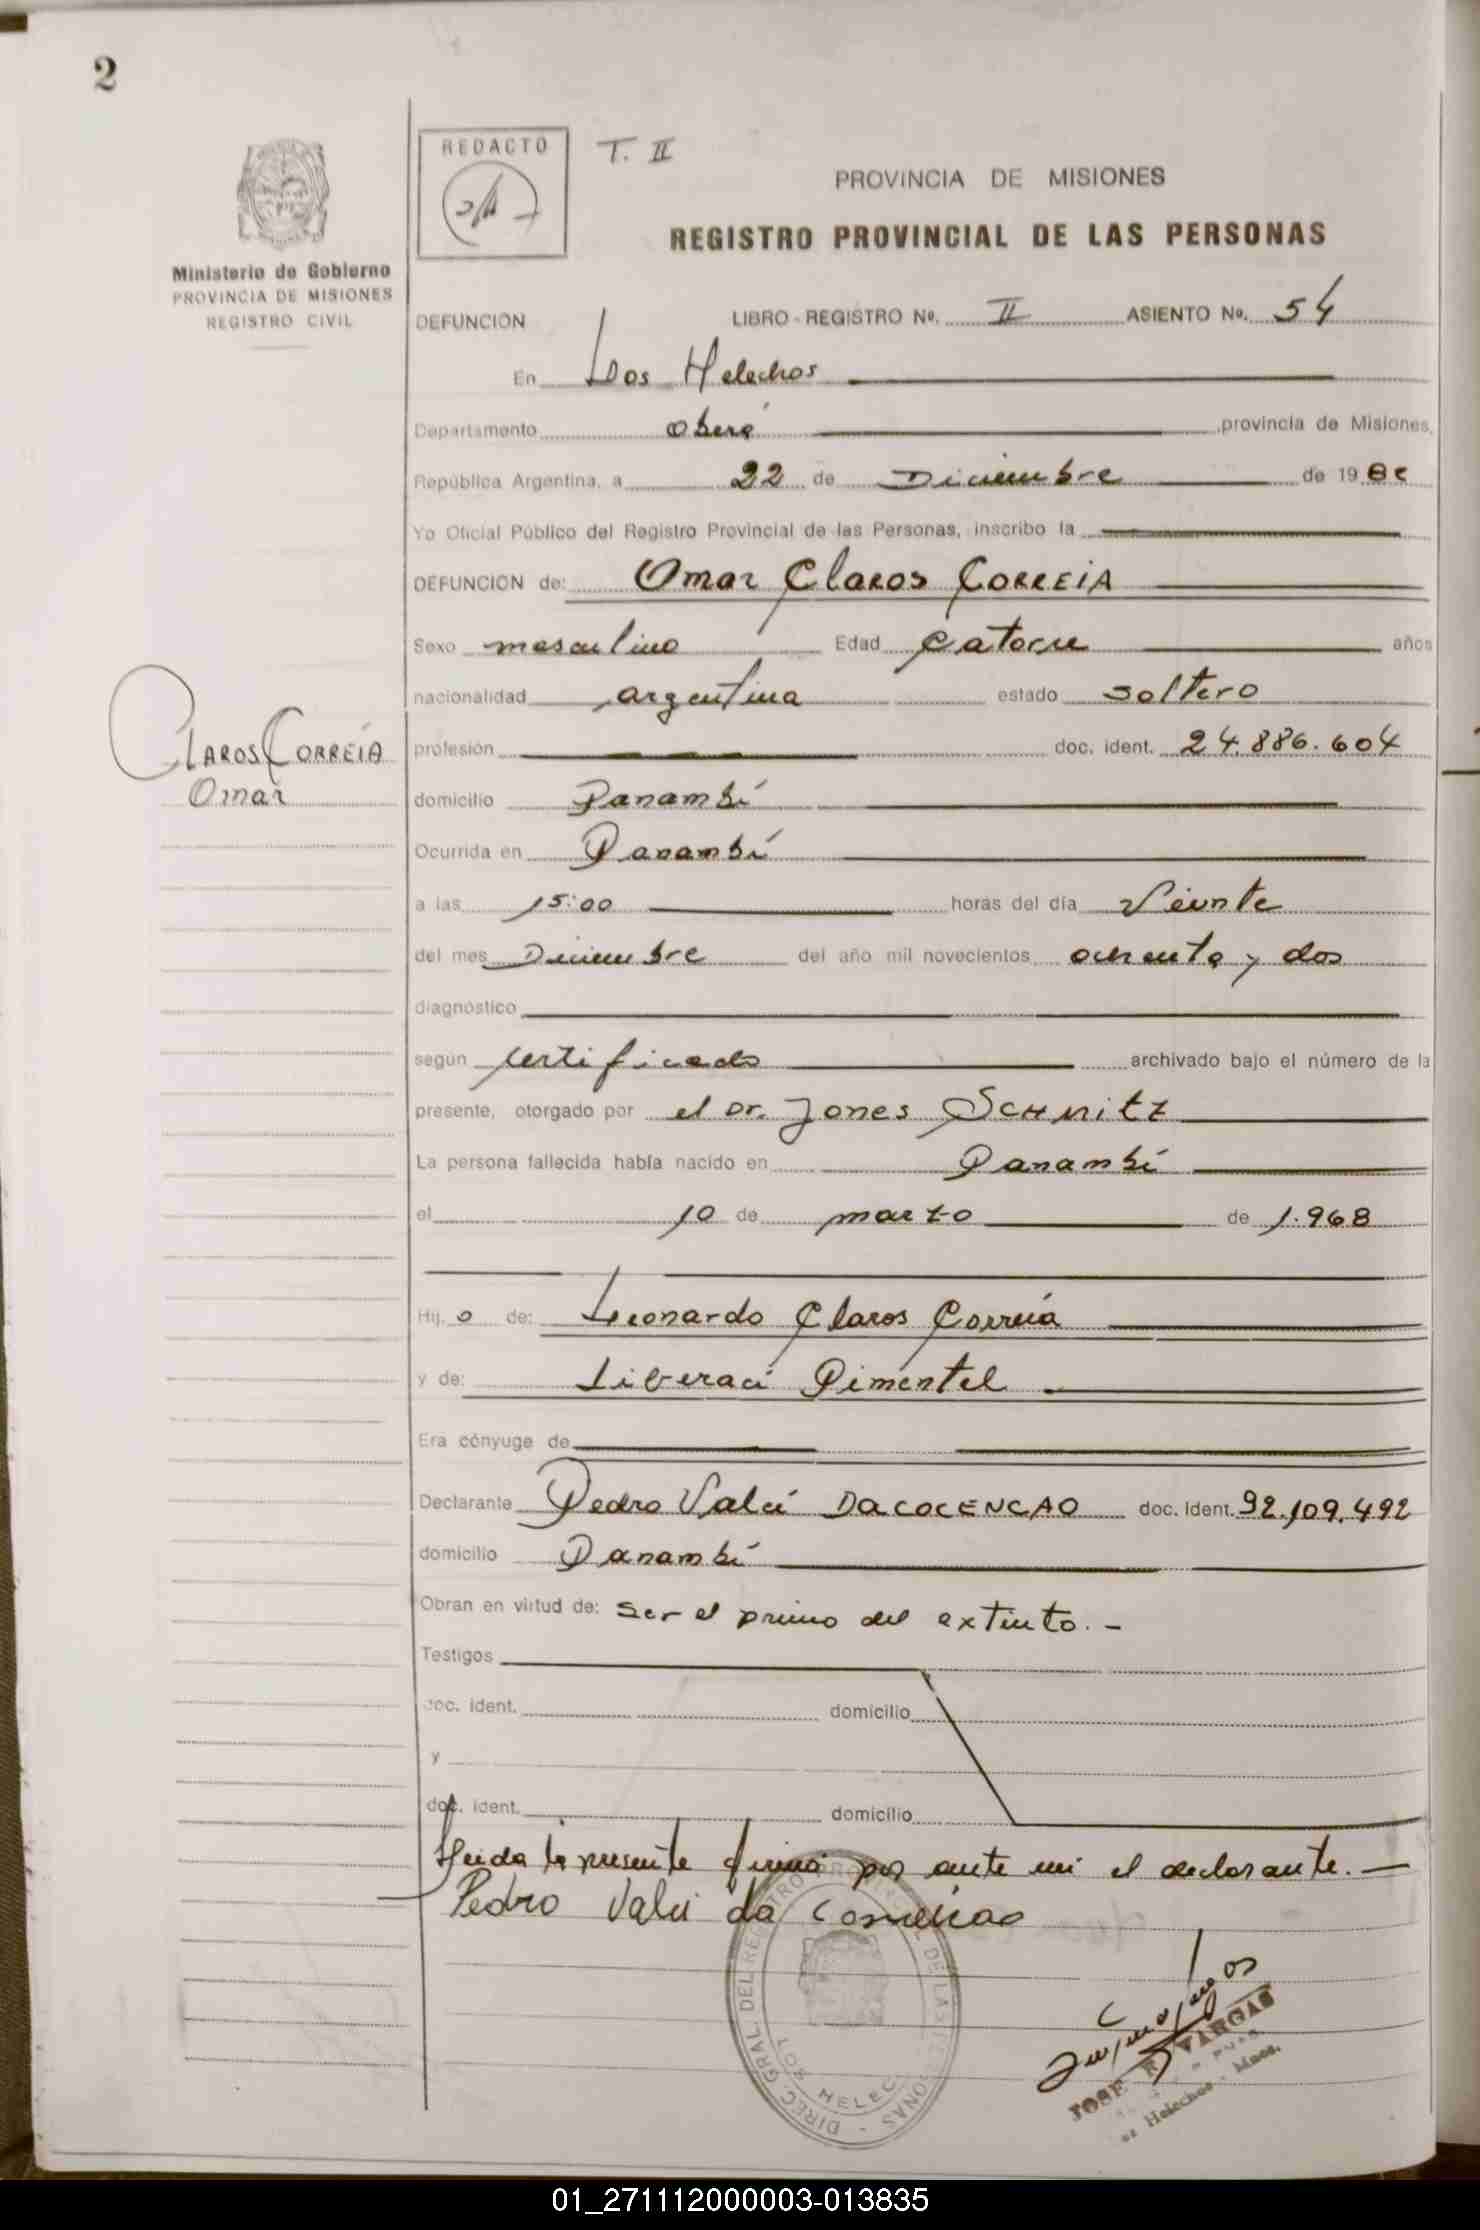 2
REDACTO
T. II
PROVINCIA DE MISIONES
REGISTRO PROVINCIAL DE LAS PERSONAS
Ministerio de Gobierno
PROVINCIA DE MISIONES
REGISTRO CIVIL
DEFUNCION LIBRO - REGISTRO Nº. II ASIENTO Nº. 54
En Los Helechos
Departamento oberá provincia de Misiones,
República Argentina, a 22 de Diciembre de 19
Yo Oficial Público del Registro Provincial de las Personas, inscribo la
DEFUNCION de: Omar Claros Correia
Sexo masculino Edad Catorce años
nacionalidad argentina estado soltero
Claros Correia
Omar
profesión doc. ident. 24.886.604
domicilio Panambí
Ocurrida en Panambí
a las 15:00 horas del día Veinte
del mes Diciembre del año mil novecientos ochenta y dos
diagnóstico
según certificado archivado bajo el número de la
presente, otorgado por el Dr. Jones Schmitz
La persona fallecida había nacido en Panambí
el 10 de marzo de 1.968
Hij o de: Leonardo Claros Correia
y de: Liberaci Pimentel
Era cónyuge de
Declarante Pedro Valci DACOCENCAO doc. ident. 92.109.492
domicilio Panambí
Obran en virtud de: ser el primo del extinto. -
Testigos
doc. ident. domicilio
y
doc. ident. domicilio
Leida la presente firma por ante mi el declarante. —
Pedro Valci da
DIREC. GRAL. DEL REGISTRO PROVINCIAL DE LAS PERSONAS
LOS HELEC
JOSE R. VARGAS
Helechos - Mnes.
01_271112000003-013835